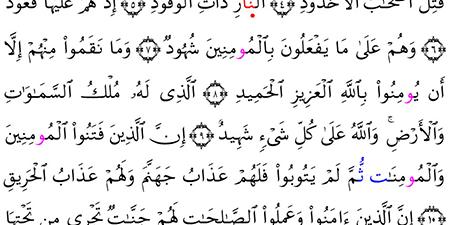 قُتِلَ أَصْحَٰبُ ٱلْأُخْدُودِ ﴿٤﴾ ٱلنَّارِ ذَاتِ ٱلْوَقُودِ ﴿٥﴾ إِذْ هُمْ عَلَيْهَا قُعُودٌ
﴿٦﴾ وَهُمْ عَلَىٰ مَا يَفْعَلُونَ بِٱلْمُومِنِينَ شُهُودٌ ﴿٧﴾ وَمَا نَقَمُوا۟ مِنْهُمْ إِلَّا
أَن يُومِنُوا۟ بِٱللَّهِ ٱلْعَزِيزِ ٱلْحَمِيدِ ﴿٨﴾ ٱلَّذِى لَهُۥ مُلْكُ ٱلسَّمَٰوَٰتِ
وَٱلْأَرْضِ ۚ وَٱللَّهُ عَلَىٰ كُلِّ شَىْءٍ شَهِيدٌ ﴿٩﴾ إِنَّ ٱلَّذِينَ فَتَنُوا۟ ٱلْمُومِنِينَ
وَٱلْمُومِنَٰت ثُّمَّ لَمْ يَتُوبُوا۟ فَلَهُمْ عَذَابُ جَهَنَّمَ وَلَهُمْ عَذَابُ ٱلْحَرِيقِ
﴿١٠﴾ إِنَّ ٱلَّذِينَ ءَامَنُوا۟ وَعَمِلُوا۟ ٱلصَّٰلِحَٰتِ لَهُمْ جَنَّٰتٌ تَجْرِى مِن تَحْتِهَا